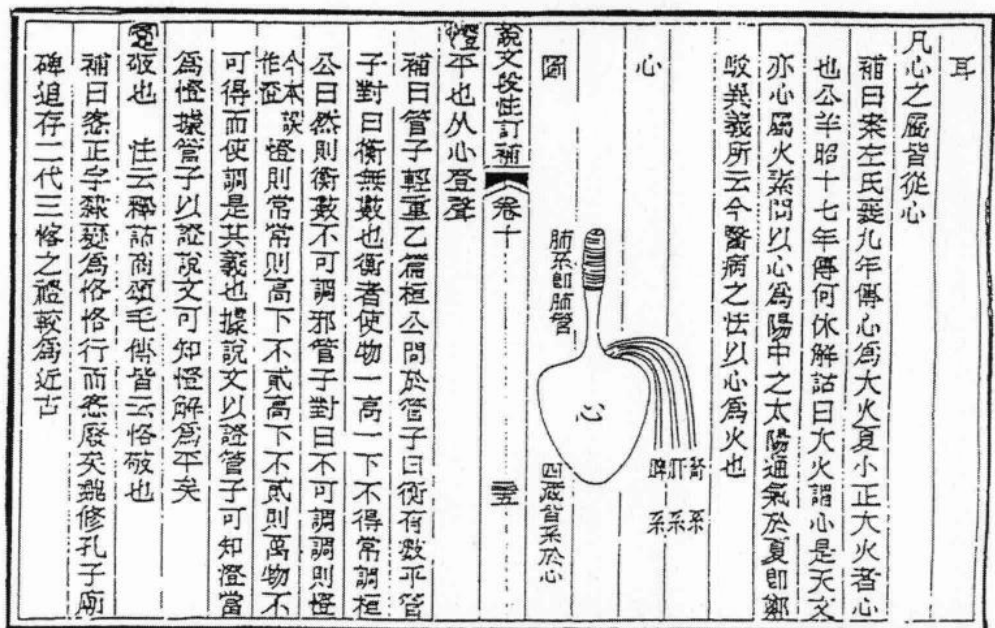 耳
凡心之屬皆從心
補曰案左氏襄九年傳心爲大火夏小正大火者心
也公羊昭十七年傳何休解詁曰大火謂心是天文
亦心屬火素問以心爲陽中之太陽通氣於夏卽鄭
駁異義所云今醫病之法以心爲火也
心
圖
肺系卽肺管
心
腎系
肝系
脾系
四臟皆系於心
說文段注訂補
卷十
憕平也从心登聲
補曰管子輕重乙篇桓公問於管子曰衡有數乎管
子對曰衡無數也衡者使物一高一下不得常調桓
公曰然則衡數不可調邪管子對曰不可調調則憕
今本誤作澄憕則常常則高下不貳高下不貳則萬物不
可得而使調是其義也據說文以證管子可知澄當
爲憕據管子以證說文可知憕解爲平矣
敬也 注云釋詁商頌毛傳皆云恪敬也
補曰愙正字隸變爲恪恪行而愙廢矣魏修孔子廟
碑追存二代三愙之禮較爲近古